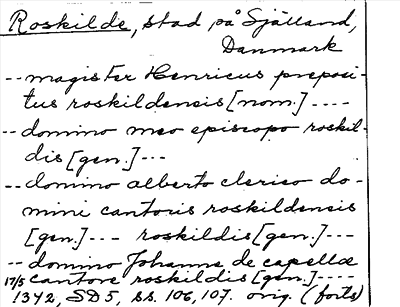 Roskilde, stad på Själland,
Danmark
-- magister Henricus preposi-
tus roskildensis [nom.] ----
-- domino meo episcopo roskil-
dis [gen.] ---
-- domino alberto clerico do-
mini cantoris roskildensis
[gen.] --- roskildis [gen.] ---
-- domino Johanne de capellæ
17/5 cantore roskildis [gen.] ----
1342, SD 5, ss. 106, 107. orig. (forts)